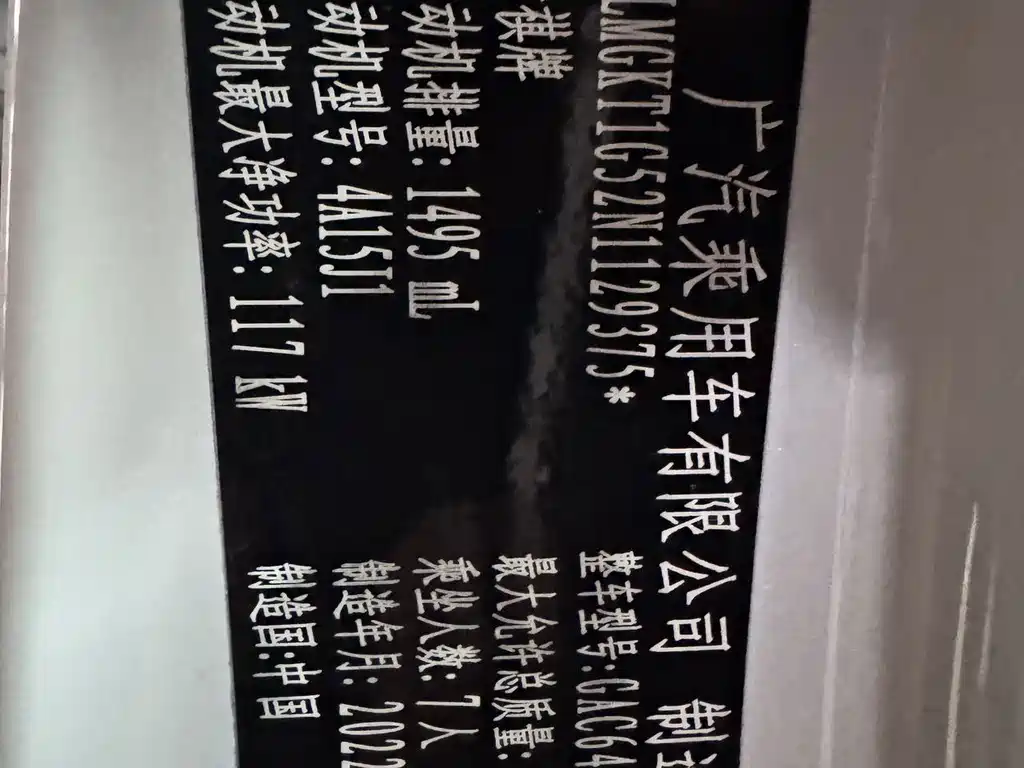 广汽乘用车有限公司 制造
LMGKT1G52N1129375*
整车型号:GAC64
祺牌
最大允许总质量:
动机排量: 1495 mL
乘坐人数: 7人
动机型号: 4A15J1
制造年月: 2022
动机最大净功率: 117 kW
制造国:中国